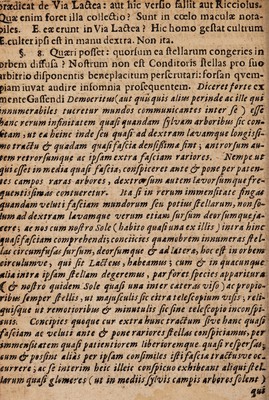 prædicat de Via Lactea: aut hic versio fallit aut Ricciolus.
Quæ enim foret illa collectio? Sunt in cœlo maculæ nota-
biles. E. exerunt in Via Lactea? Hic homo gestat cultrum
E. culter ipsi est in manu dextra. Non ita.
§. 8. Quæri posset: quorsum ea stellarum congeries in
orbem diffusa? Nostrum non est Conditoris stellas pro suo
arbitrio disponentis beneplacitum perscrutari: forsan quem-
piam juvat audire insomnia prosequentem. Diceret forte ex
mente Gassendi Democritus (aut qui quis alius perinde ac ille qui
innumerabiles tueretur mundos communicantes inter se) esse
hanc rerum infinitatem quasi quandam sylvam arboribus sic con-
sitam, ut ea heine inde seu quasi ad dextram lavamque longissi-
mo tractu & quadam quasi fascia densissima sint; antrorsum au-
tem retrorsumque ac ipsam extra fasciam rariores. Nempe ut
qui esset in media quasi fascia, conspiceret ante & pone per paten-
tes campos raras arbores, dextrorsum autem lævorsumque fre-
quentissimas contueretur. Ita si in rerum immensitate fingas
quandam veluti fasciam mundorum seu potius stellarum, non so-
lum ad dextram lavamque verum etiam sursum deorsumque ja-
cere; ac nos cum nostro Sole (habito quasi una ex illis) intra hinc
quasi fasciam comprehendi; conjicies quamobrem innumera stel-
las circumfusas sursum, deorsumque & ad latera, hoc est in orbem
circulumve, qui sit Lacteus, habeamus; cum & in quacunque
alia intra ipsam stellam degeremus, par fores species apparitura
(& nostro quidem Sole quasi una inter cateras viso) ac propio-
ribus semper stellis, ut majusculis sic citra telescopium visis; reli-
quisque ut remotioribus & minutulis sic sine telescopio inconspi-
cuis. Concipies quoque cur extra hunc tractum sive hanc quasi
fasciam ac veluti ante & pone rariores stellas conspiciamus, per
immensitatem quasi patientiorem liberioremque quasi respersas;
cum & possint aliàs per ipsam consimiles isti fascia tractusve oc-
currere; ac se interim heic illeic conspicuo exhibeant aliqui stel-
larum quasi glomeres (ut in mediis sylvis campis arbores solent)
qui